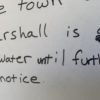 e town
rshall is
water until furth
notice.